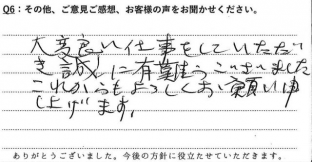 Q6：その他、ご意見ご感想、お客様の声をお聞かせください。
大変良い仕事をしていただ
き誠に有難うございました
これからもよろしくお願い申
し上げます。
ありがとうございました。今後の方針に役立たせていただきます。